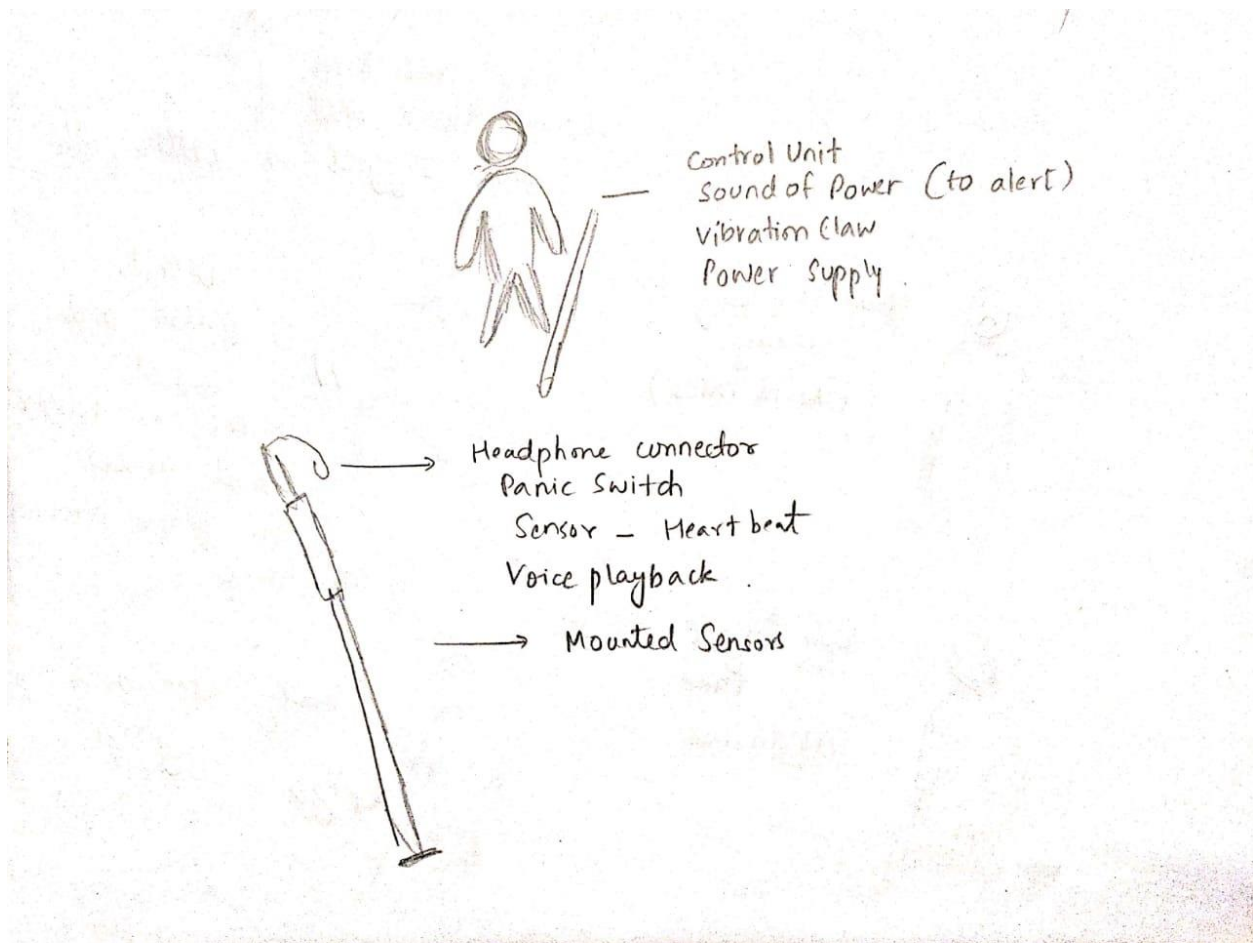 Control Unit
Sound of Power (to alert)
Vibration Claw
Power Supply.
Headphone connector
Panic Switch
Sensor - Heart beat
Voice playback.
Mounted Sensors